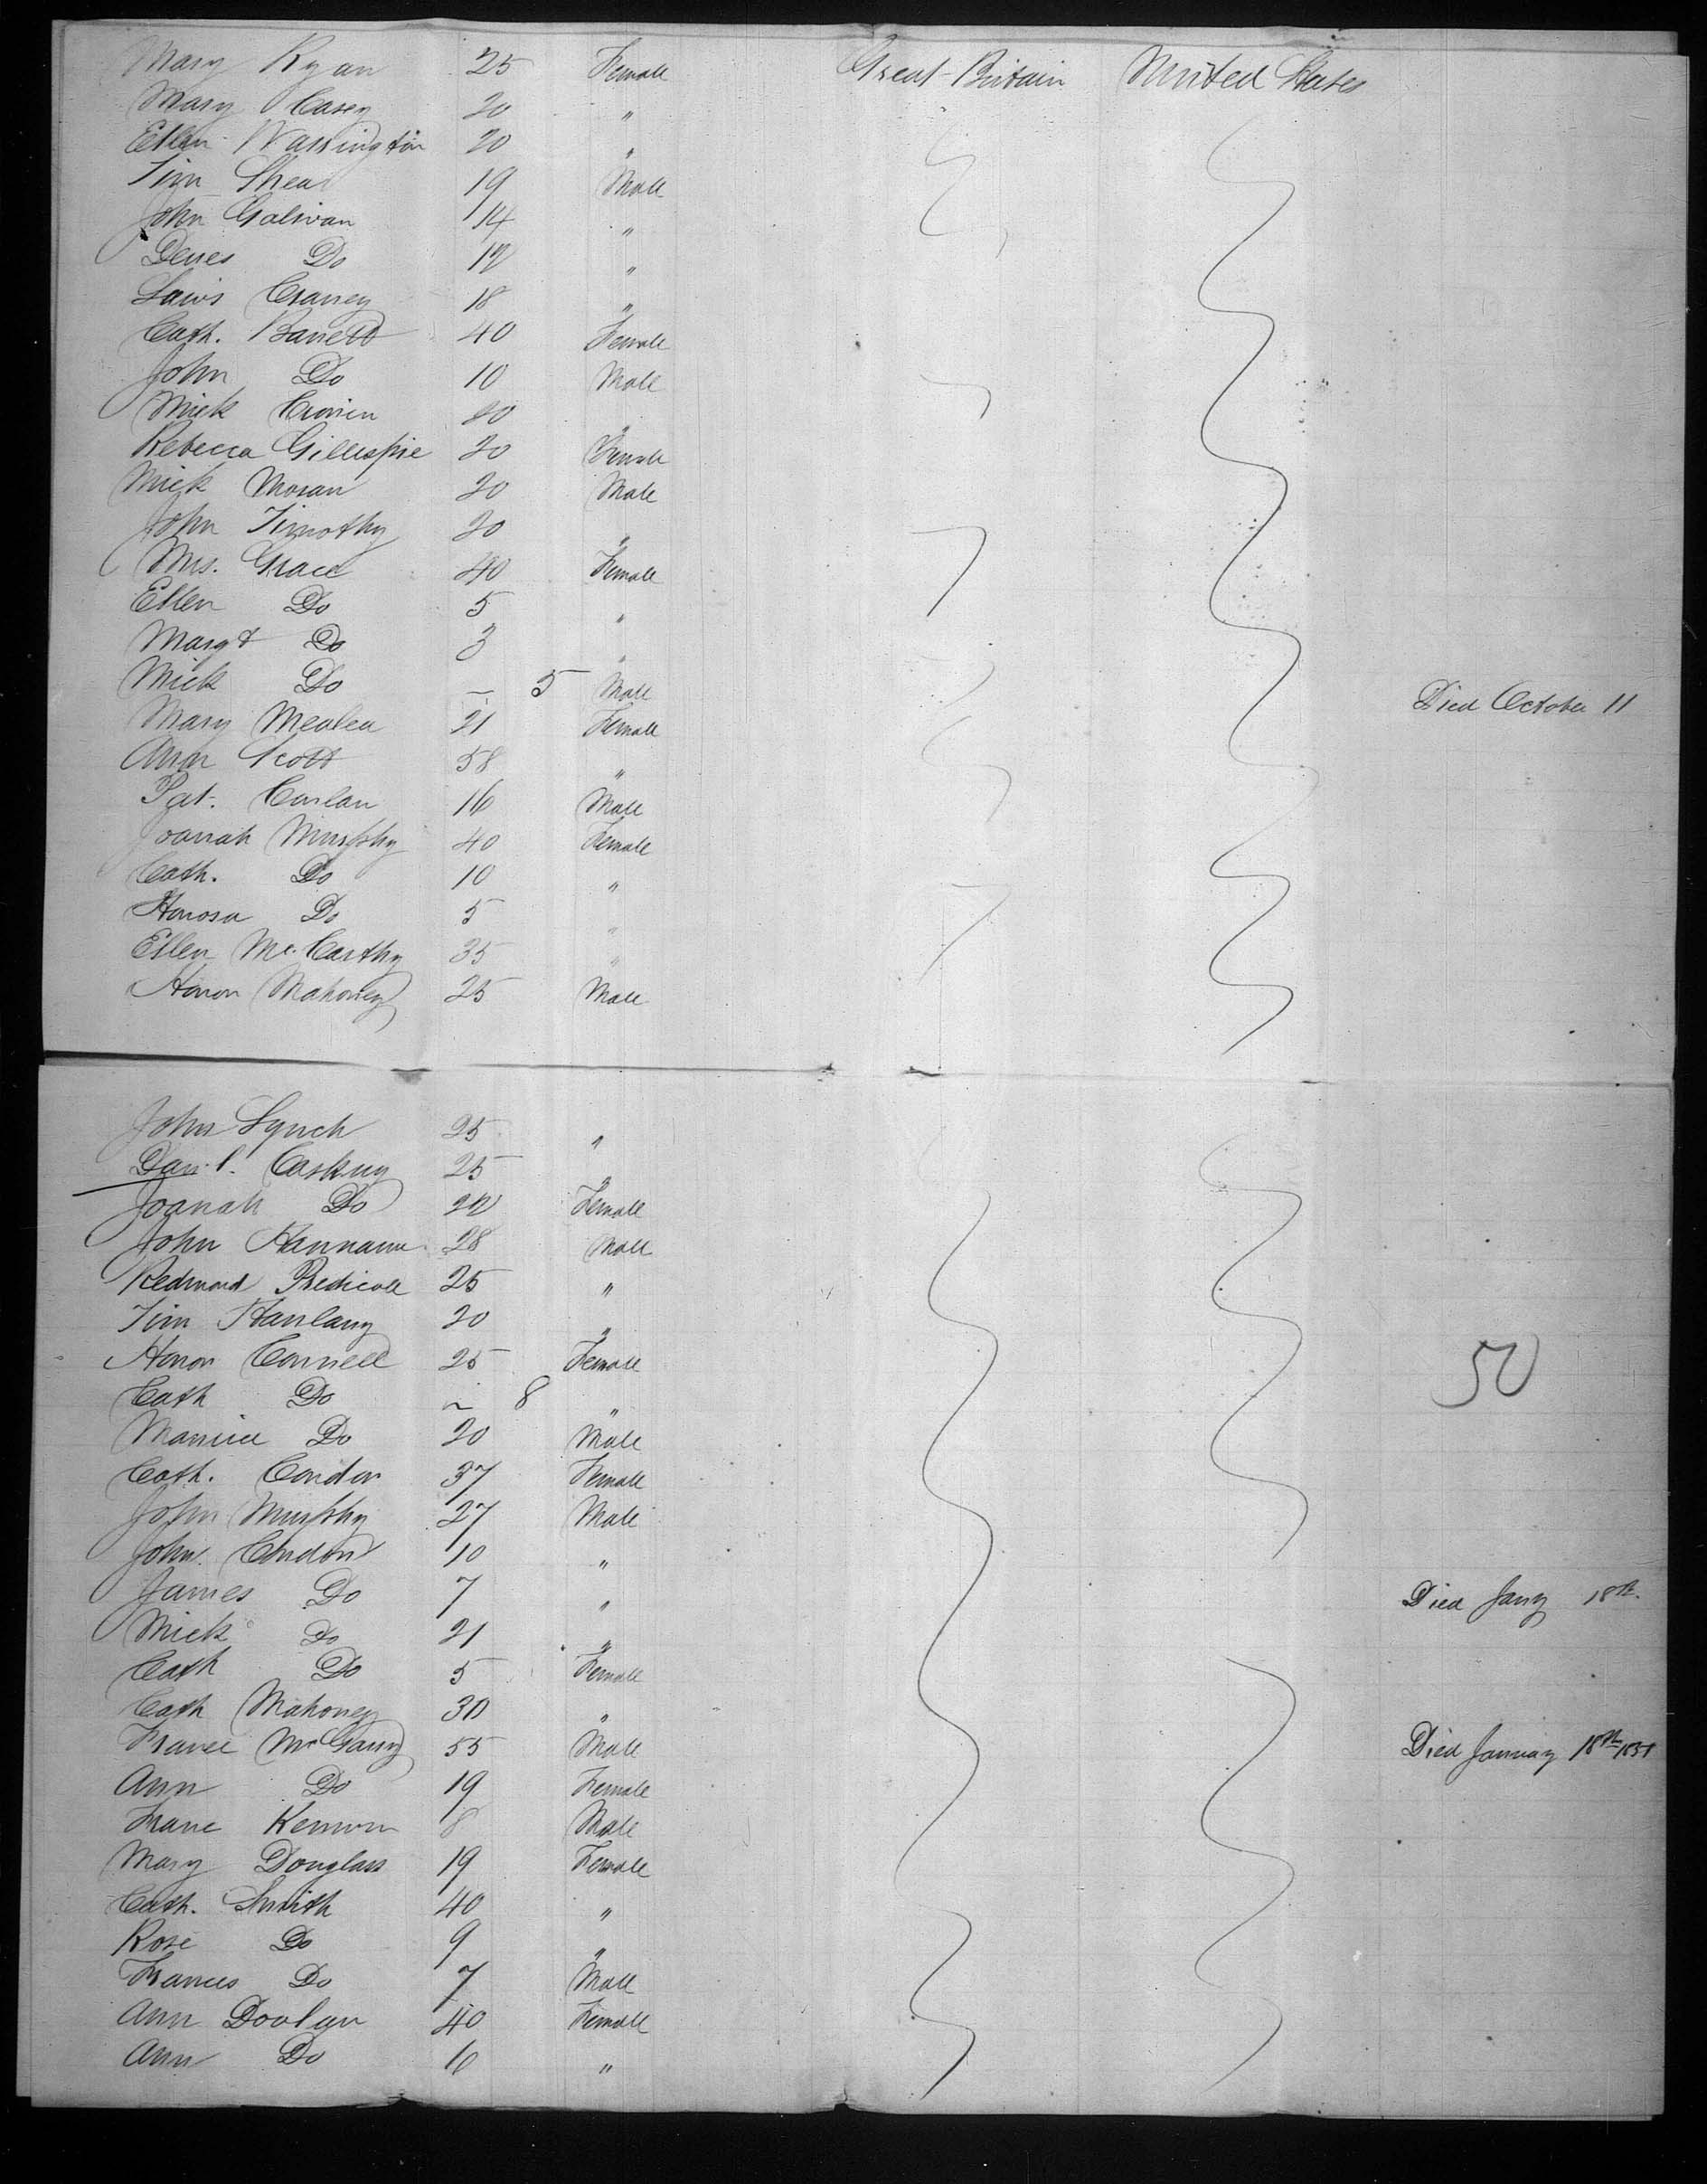 Mary Ryan 25 Female Great Britain United States
Mary Casey 20 "
Ellen Warrington 20 "
Tim Shea 19 Male
John Galivan 14 "
Do 12 "
18 "
Cath. Barrett 40 Female
John Do 10 Male
Mick Cronin 20 "
Rebecca Gillespie 20 Female
Mick Moran 20 Male
John Timothy 20 "
Mrs. Grace 40 Female
Ellen Do 5 "
Margt Do 3 "
Mick Do — 5 Male Died October 11
Mary Mealea 21 Female
Ann Scott 58 "
Pat. Conlan 16 Male
Joanah Murphy 40 Female
Cath. Do 10 "
Honora Do 5 "
Ellen McCarthy 35 "
Honor Mahoney 25 Male
John Lynch 25 "
Danl. 25 "
Joanah Do 22 Female
John 28 Male
Redmond 25 "
Tim 20 "
Honor Connell 25 Female
Cath Do ~ 8 "
Maurice Do 20 Male
Cath. Condon 37 Female
John Murphy 27 Male
John Condon 10 "
James Do 7 " Died Jany 18th.
Mick Do 21 "
Cath Do 5 Female
Cath Mahoney 30 "
McGarry 55 Male Died January 18th 1851
Ann Do 19 Female
8 Male
Mary Douglass 19 Female
Cath. Smith 40 "
Rose Do 9 "
Frances Do 7 Male
Ann 40 Female
Ann Do "
50